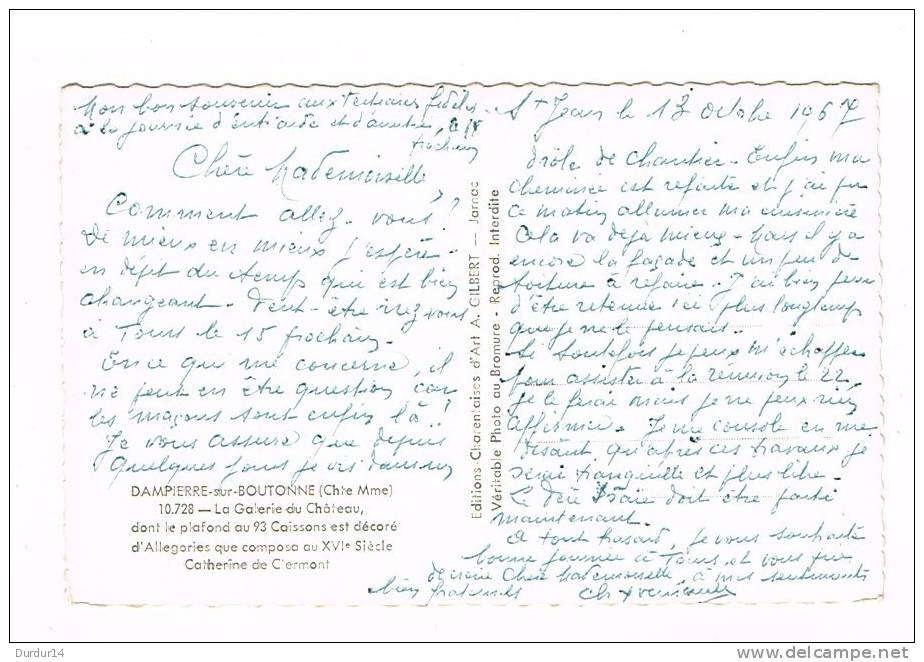 Mon bon souvenir aux Tertiaires fidèles
à la journée d'entr'aide et d'amitié, le 15
prochain
St Jean le 13 Octobre 1967
Chère Mademoiselle,
Comment allez-vous?
De mieux en mieux j'espère
en dépit du temps qui est bien
changeant. Peut-être irez vous
à Tours le 15 prochain.
En ce qui me concerne, il
ne peut en être question car
les maçons sont enfin là!!
Je vous assure que depuis
quelques jours je vis dans un
drôle de chantier - Enfin ma
cheminée est refaite et j'ai pu
ce matin allumer ma cuisinière
Cela va déjà mieux - Mais il y a
encore la façade et un peu de
toiture à refaire. J'ai bien peur
d'être retenue ici plus longtemps
que je ne le pensais.
Si toutefois je peux m'échapper
pour assister à la réunion le 22,
je le ferai mais je ne peux rien
affirmer. Je me console en me
disant qu'après ces travaux je
serai tranquille et plus libre.
Le Père doit être parti
maintenant.
A tout hasard, je vous souhaite
bonne journée à Tours, et vous prie
de croire Chère Mademoiselle, à mes sentiments
bien fraternels
DAMPIERRE-sur-BOUTONNE (Chte Mme)
10.728 — La Galerie du Château,
dont le plafond au 93 Caissons est décoré
d'Allegories que composa au XVIe Siècle
Catherine de Clermont
Editions-Charentaises d'Art A. GILBERT — Jarnac
Véritable Photo au Bromure - Reprod. Interdite
Durdur14
http://www.delcampe.net